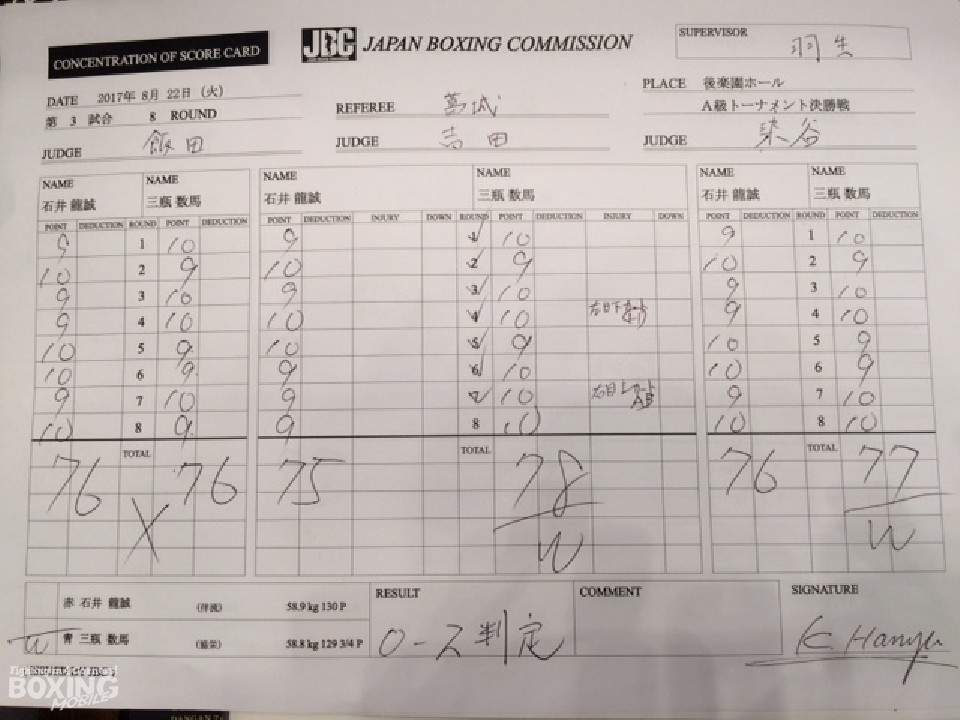 CONCENTRATION OF SCORE CARD
JBC JAPAN BOXING COMMISSION
SUPERVISOR 羽生
DATE 2017年 8月 22日 (火)
第 3 試合 8 ROUND
JUDGE 飯田
REFEREE 葛城
JUDGE 吉田
PLACE 後楽園ホール
A級トーナメント決勝戦
JUDGE 染谷
NAME NAME NAME NAME NAME NAME
石井 龍誠 三瓶 数馬 石井 龍誠 三瓶 数馬 石井 龍誠 三瓶 数馬
POINT DEDUCTION ROUND POINT DEDUCTION POINT DEDUCTION INJURY DOWN ROUND POINT DEDUCTION INJURY DOWN POINT DEDUCTION ROUND POINT DEDUCTION
9 1 10 9 1 10 9 1 10
10 2 9 10 2 9 10 2 9
9 3 10 9 3 10 9 3 10
9 4 10 10 4 10 右目下 9 4 10
10 5 9 10 5 9 10 5 9
10 6 9 9 6 10 10 6 9
9 7 10 9 7 10 右目 9 7 10
10 8 9 9 8 10 10 8 10
TOTAL TOTAL TOTAL
76 76 75 78 76 77
X W W
赤 石井 龍誠 58.9 kg 130 P
W 青 三瓶 数馬 58.8 kg 129 3/4 P
RESULT
0-2 判定
COMMENT
SIGNATURE
K. Hanyu
BOXING
MOBILE